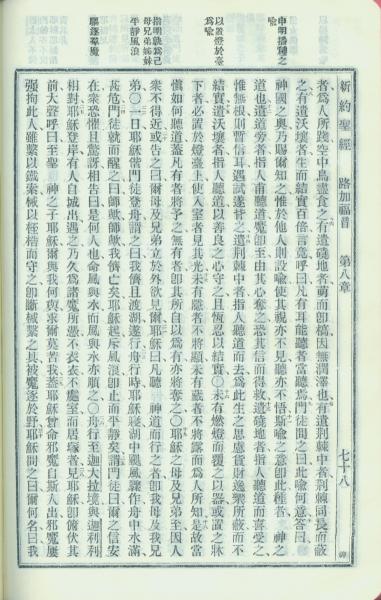 新約聖經 路加福音 第八章 七十八
申明播種之喩
以置燈於臺爲喩
指明孰爲己母兄弟姊妹
平靜風浪
驅逐羣魔
者爲人所踐空中鳥盡食之有遺磽地者萌而卽槁因無潤澤也有遺荊棘中者荊棘同長而蔽
之有遺沃壤者生而結實百倍言竟呼曰凡有耳能聽者當聽焉門徒問之曰此喩何意答曰
神國之奧乃賜爾知之惟於他人則設喩使其視亦不見聽亦不悟斯喩之意卽此種者 神之
道也遺道旁者指人甫聽道魔卽至由其心奪之恐其信而得救遺磽地者指人聽道而喜受之
惟無根則暫信耳遇試遂背之遺荊棘中者指人聽道而去爲此生之思慮貨財逸樂所蔽而不
結實遺沃壤者指人聽道以善良之心守之且恆忍以結實○未有燃燈而覆之以器或置之牀
下者必置於燈臺上使入室者見其光未有隱者不將顯未有藏者不將露而爲人所知是故當
愼如何聽道蓋凡有者將予之無有者卽其所自以爲有亦將奪之○耶穌之母及兄弟至因人
衆不得近或告之曰爾母及兄弟立於外欲見爾耶穌曰凡聽 神道而行之者卽我母及我兄
弟○一日耶穌偕門徒登舟謂之曰我儕且渡湖遂行舟行時耶穌寢湖中颶風驟作舟中水滿
甚危門徒就而醒之曰師歟師歟我儕亡矣耶穌起斥風浪卽止而平靜矣謂門徒曰爾之信安
在衆恐懼且驚訝相告曰是何人也命風與水而風與水亦順之○舟行至迦大拉境與迦利利
相對耶穌登岸有人自城出遇之乃久爲諸魔所憑不衣衣不處室而居塚者見耶穌卽俯伏其
前大聲呼曰至聖 神之子耶穌爾與我何與求爾莫苦我蓋耶穌曾命邪魔自斯人出邪魔屢
强拘此人雖繫以鐵索械以桎梏而守之卽斷械繫之具被魔逐於野耶穌問之曰爾何名曰我